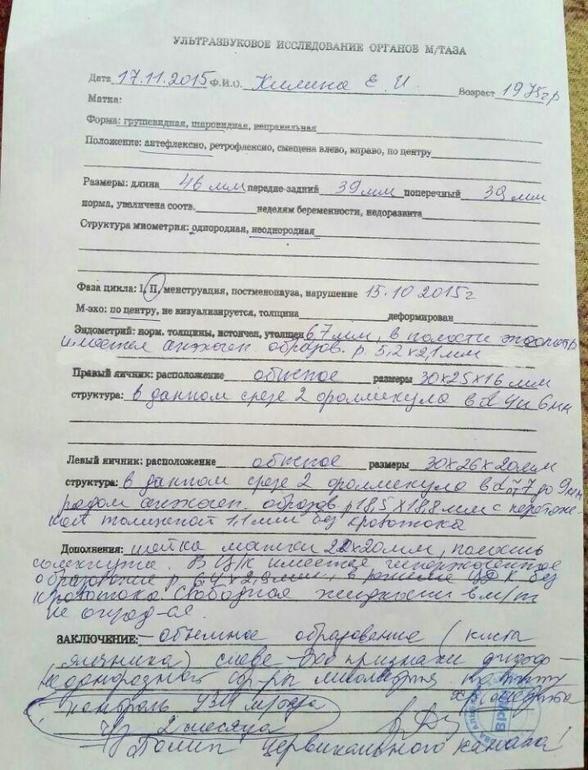 УЛЬТРАЗВУКОВОЕ ИССЛЕДОВАНИЕ ОРГАНОВ М/ТАЗА
Дата 17.11.2015 Ф.И.О. Килина Е И. Возраст 1975г р
Матка:
Форма: грушевидная, шаровидная, неправильная
Положение: антефлексио, ретрофлексио, смещена влево, вправо, по центру
Размеры: длина 46 мм передне-задний 39 мм поперечный 39 мм
норма, увеличена соотв. неделям беременности, недоразвита
Структура миометрия: однородная, неоднородная
Фаза цикла: I, II, менструация, постменопауза, нарушение 15.10 2015г
М-эхо: по центру, не визуализируется, толщина деформирован
Эндометрий: норм. толщины, истончен, утолщен 6,7 мм, в полости
имеется анэхоген образов. р 5,2x2,1мм
Правый яичник: расположение обычное размеры 30x25x16 мм
структура: в данном срезе 2 фолликула в d 4и 6мм
Левый яичник: расположение обычное размеры 30x26x20мм
структура: в данном срезе 2 фолликула в d от 7 до 9мм,
рядом анэхоген. образов. р 18,5x18,8мм с
толщиной 1,1мм без кровотока
Дополнения: шейка матки 22x20мм, полость
сомкнута. В Ц/К имеется
образование р. 6,4x2,8мм, в режиме ЦДК без
кровотока Свободная жидкость в м/т
не опред-ся.
ЗАКЛЮЧЕНИЕ: - объемное образование (киста
яичника) слева - эхо признаки
неоднородного стр-ры миометрия.
контроль УЗИ
чз 2 месяца
Полип цервикального канала!